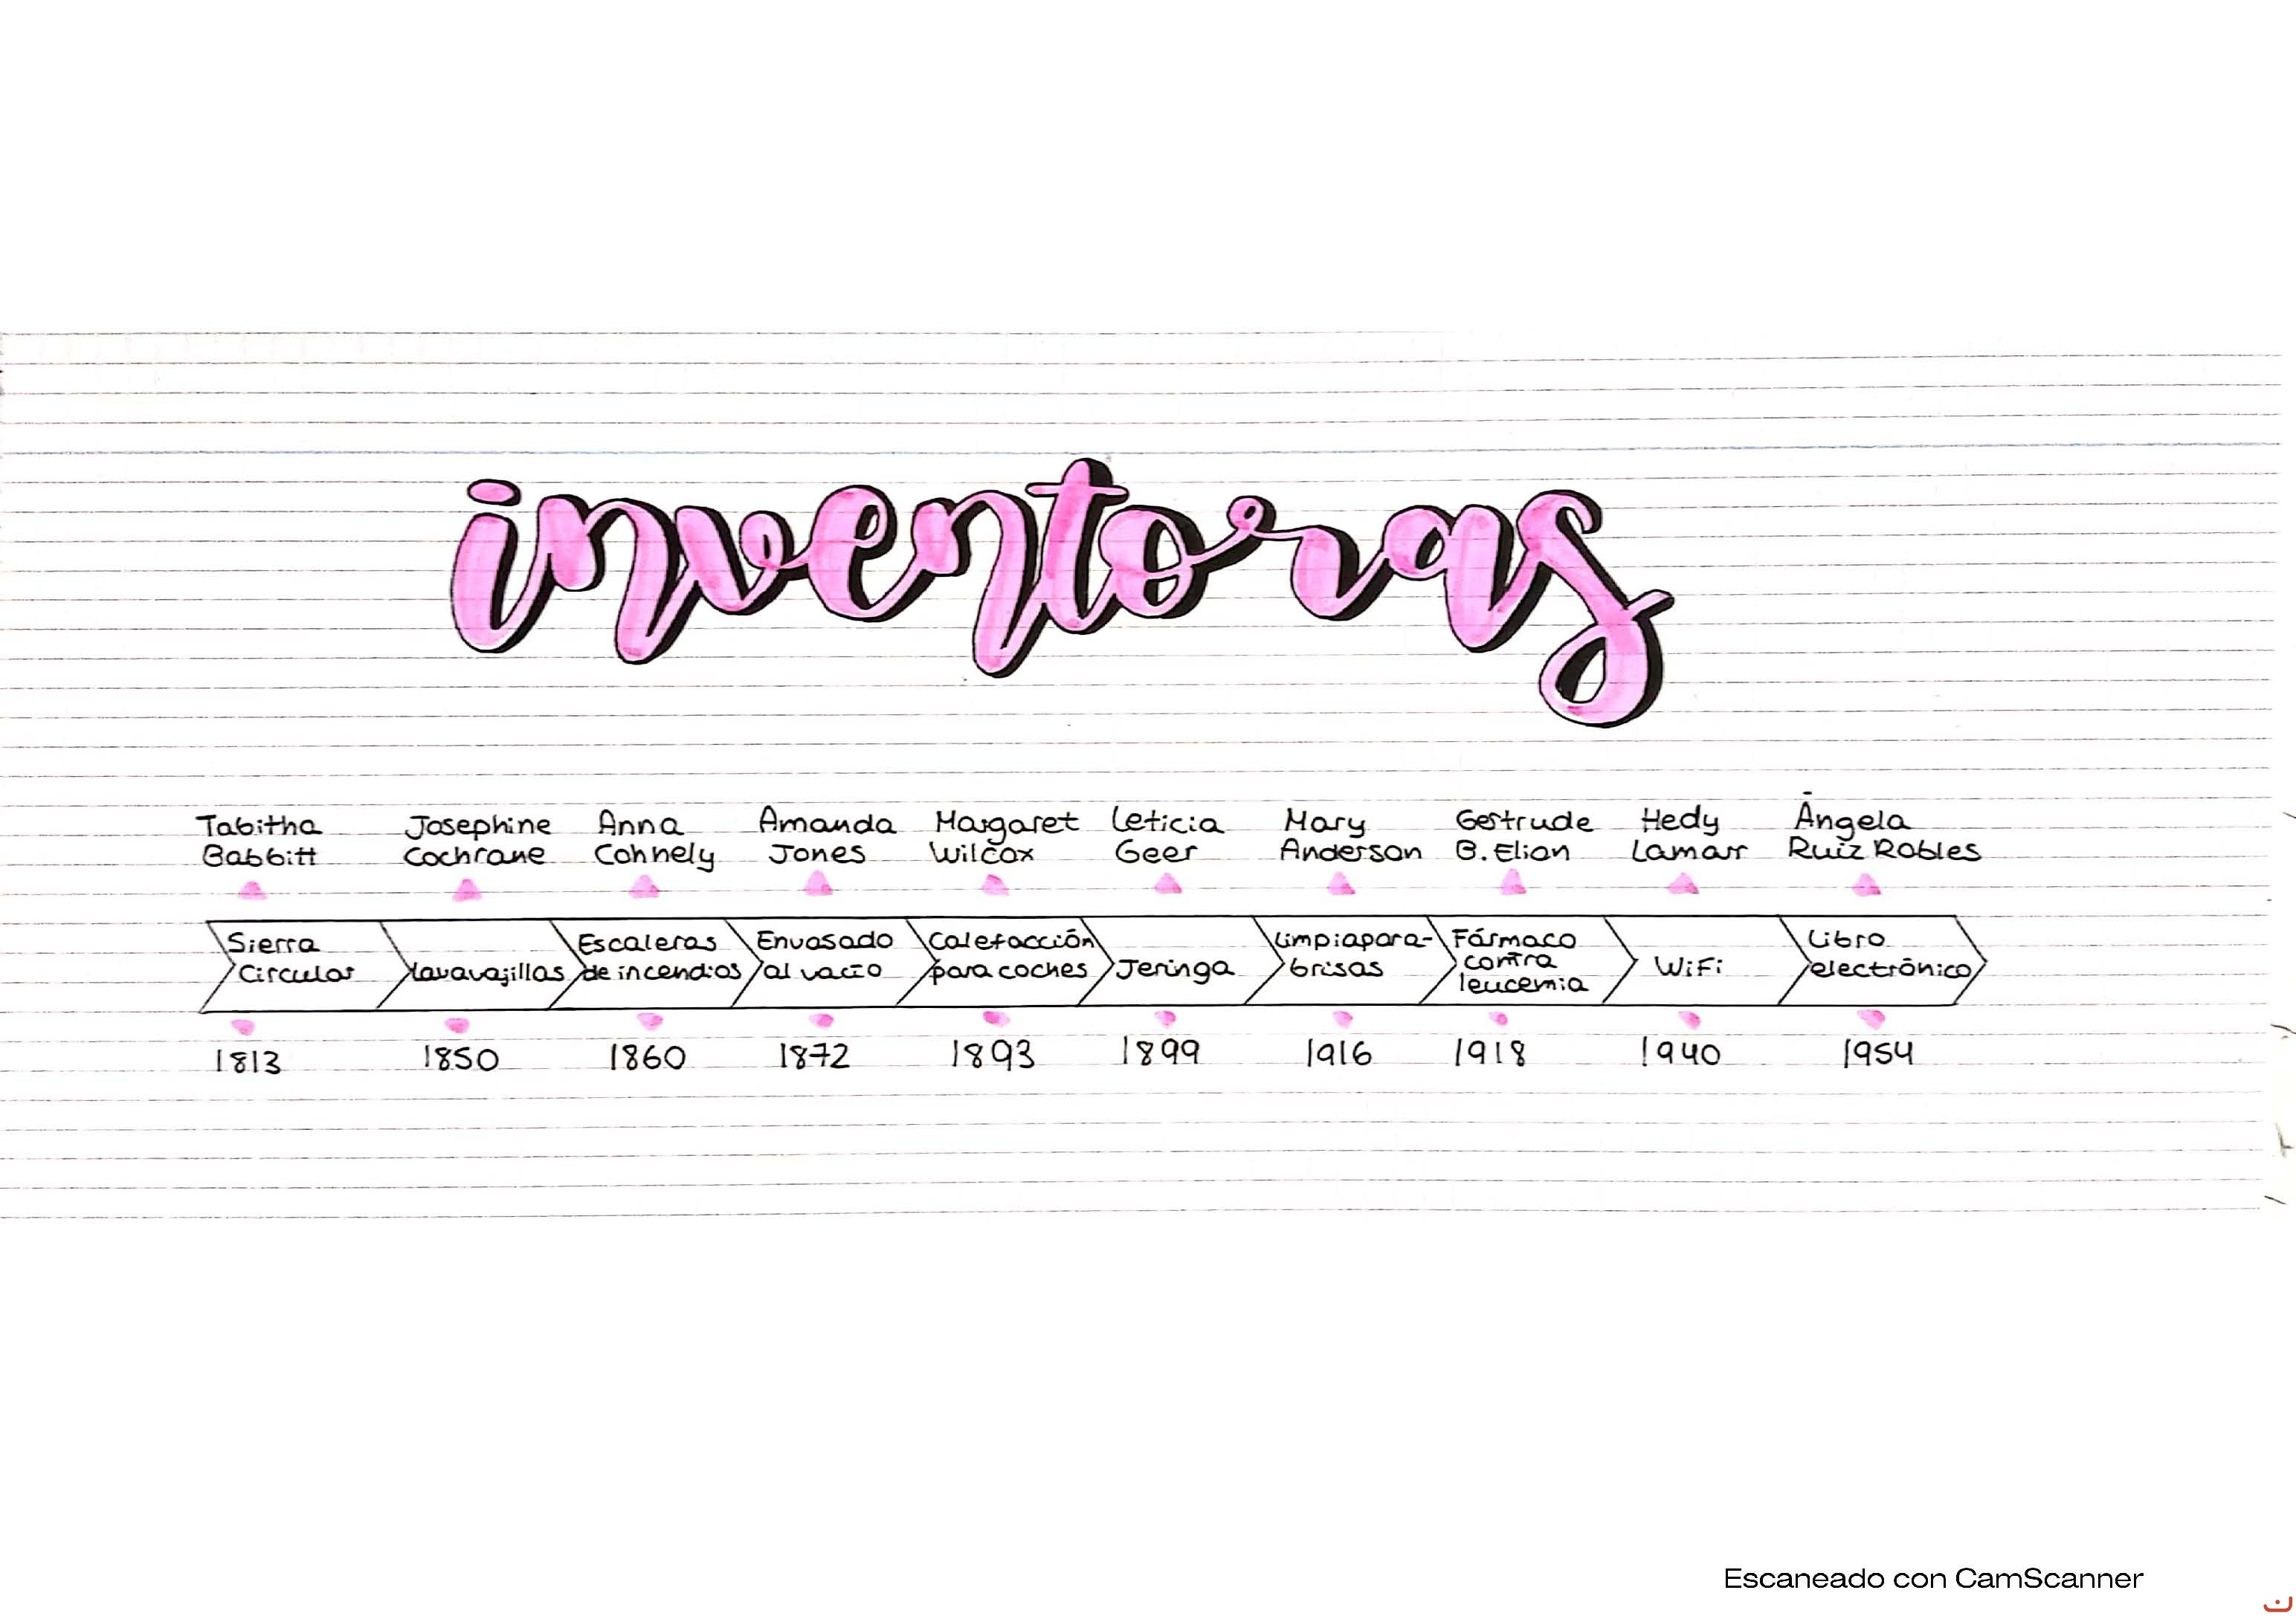 inventoras
Tabitha Josephine Anna Amanda Margaret Leticia Mary Gertrude Hedy Ángela
Babbitt Cochrane Cohnely Jones Wilcox Geer Anderson B. Elion Lamarr Ruiz Robles
Sierra
Circular
lavavajillas
Escaleras
de incendios
Envasado
al vacío
Calefacción
para coches
Jeringa
Limpiapara-
brisas
Fármaco
contra
leucemia
WiFi
Libro
electrónico
1813 1850 1860 1872 1893 1899 1916 1918 1940 1954
Escaneado con CamScanner